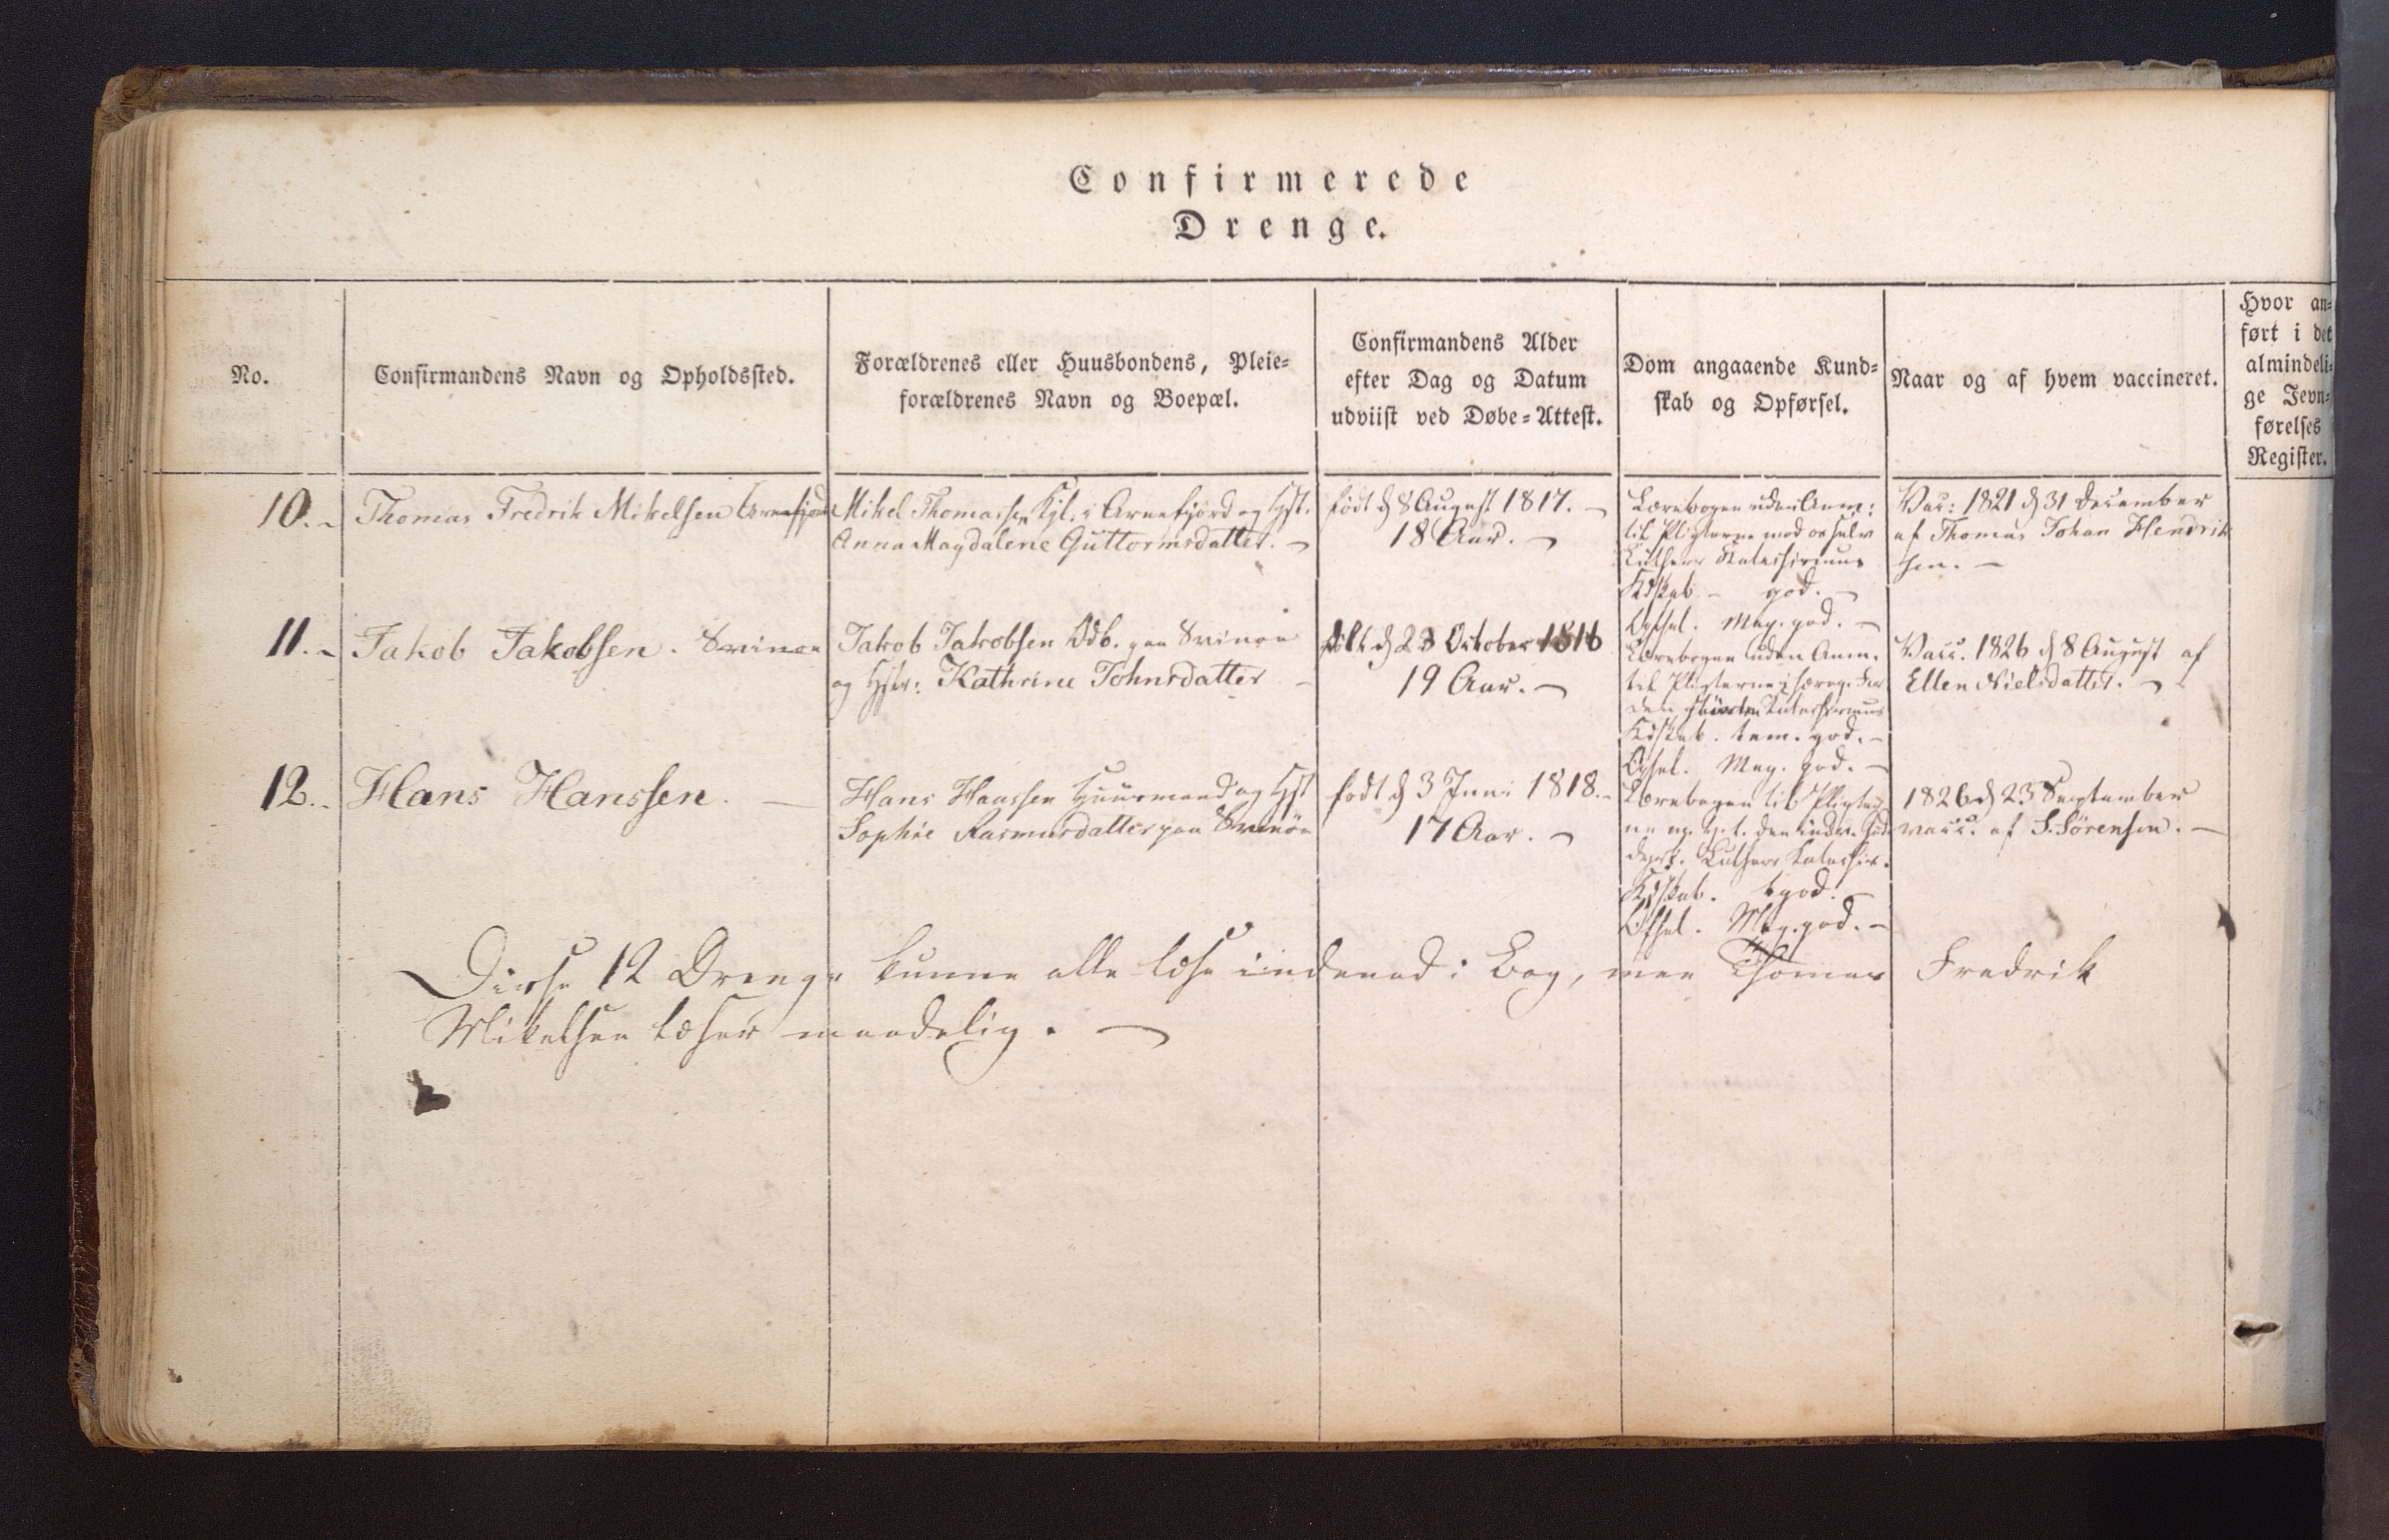 Confirmerede
Drenge.
No.
Confirmandens Navn og Opholdssted.
Forældrenes eller Huusbondens, Pleie-
forældrenes Navn og Boepæl.
Confirmandens Alder
efter Dag og Datum
udviist ved Døbe-Attest.
Dom angaaende Kund-
skab og Opførsel.
Naar og af hvem vaccineret.
Hvor an-
ført i det
almindeli-
ge Jevn-
førelses
Register.
10.
Thomas Fredrik Mikelsen Arnefjord
Mikel Thomassen Kjl. i Arnefjord og Hst.
Anna Magdalene Guttormsdatter.
født d 8 August 1817.
18 Aar.
Lærebogen uden Anm:
til Pligterne med
Luthers Katechismus
Kdskab god.
Opfsel. Meg. god.
Vac: 1821 d 31 December
af Thomas Johan Hendrik
sen.
11.
Jakob Jakobsen. Svinøe
Jakob Jakobsen Odb. paa Svinøe
og Hstr: Kathrine Johnsdatter
født d 23 October 1816
19 Aar.
Lærebogen uden Anm.
til Pligterne
den Katechismus
Kdskab. tem. god.
Opfsel. Meg. god.
Vacc. 1826 d 8 August af
Ellen Nielsdatter.
12.
Hans Hanssen.
Hans Hanssen Huusmand og Hst
Sophie Rasmusdatter paa Svinøe
født d 3 Juni 1818.
17 Aar.
Lærebogen til Pligter
ne
Luthers Katechis.
Kdskab. god.
Opfsel. Meg. god.
1826 d 23 September
vacc. af S. Sørensen.
Disse 12 Drenge kunne alle læse indenad i Bog, men Thomas Fredrik
Mikelsen læser maadelig.